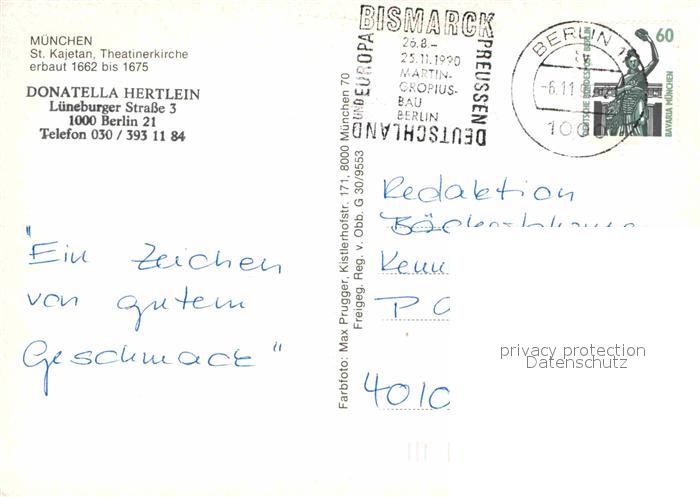 MÜNCHEN
St. Kajetan, Theatinerkirche
erbaut 1662 bis 1675
DONATELLA HERTLEIN
Lüneburger Straße 3
1000 Berlin 21
Telefon 030 / 393 11 84
"Ein Zeichen
von gutem
Geschmack"
Farbfoto: Max Prugger, Kistlerhofstr. 171, 8000 München 70
Freigeg. Reg. v. Obb. G 30/9553
BISMARCK
PREUSSEN
DEUTSCHLAND
UND EUROPA
26.8.–
25.11.1990
MARTIN-
GROPIUS-
BAU
BERLIN
BERLIN 1
-6.11
1000
60
DEUTSCHE BUNDESPOST BERLIN
BAVARIA MÜNCHEN
Redaktion
Kenn
4010
privacy protection
Datenschutz